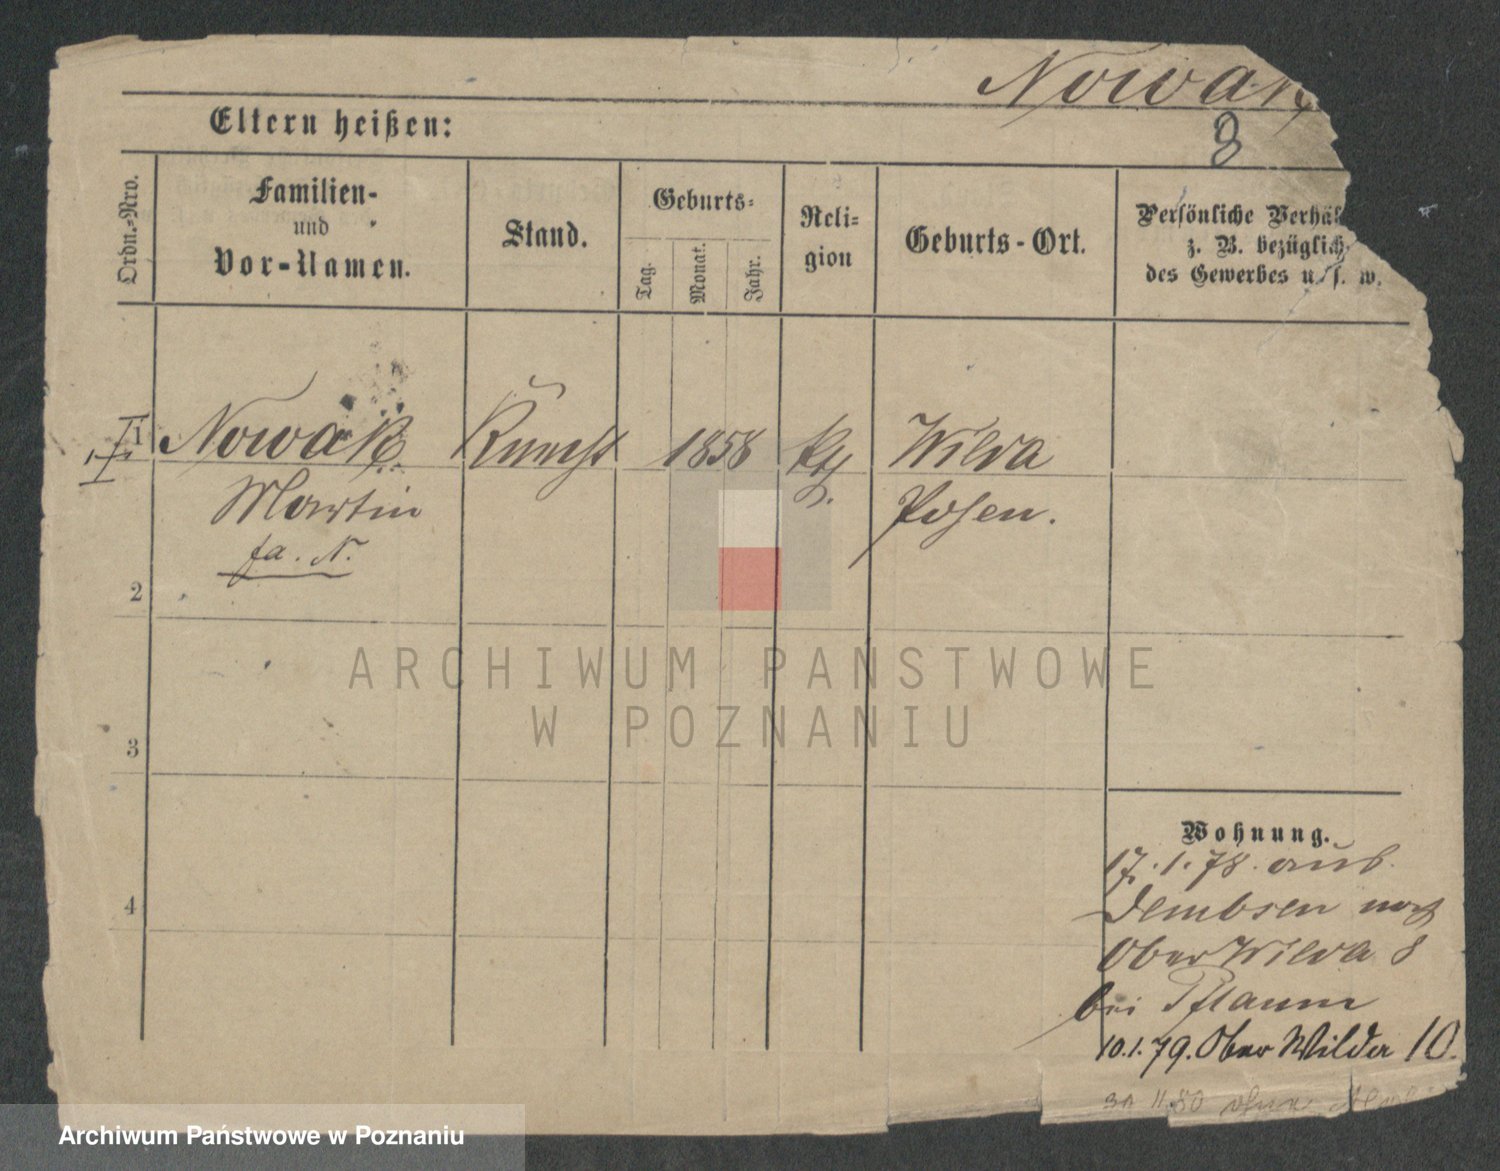 Nowak
8
Eltern heißen:
Ordn.-Nro.
Familien-
und
Vor-Namen.
Stand.
Geburts-
Tag.
Monat.
Jahr.
Reli-
gion
Geburts-Ort.
Persönliche Verhäl
z. B. bezüglich
des Gewerbes u. s. w.
1 Nowak Knecht 1858 kth Wilda
Martin Posen.
fa. N.
2
3
4
Wohnung.
17.1.78. aus
Dembsen nach
Ober Wilda 8
bei Pflaum
10.1.79. Ober Wilda 10.
ARCHIWUM PAŃSTWOWE
W POZNANIU
Archiwum Państwowe w Poznaniu